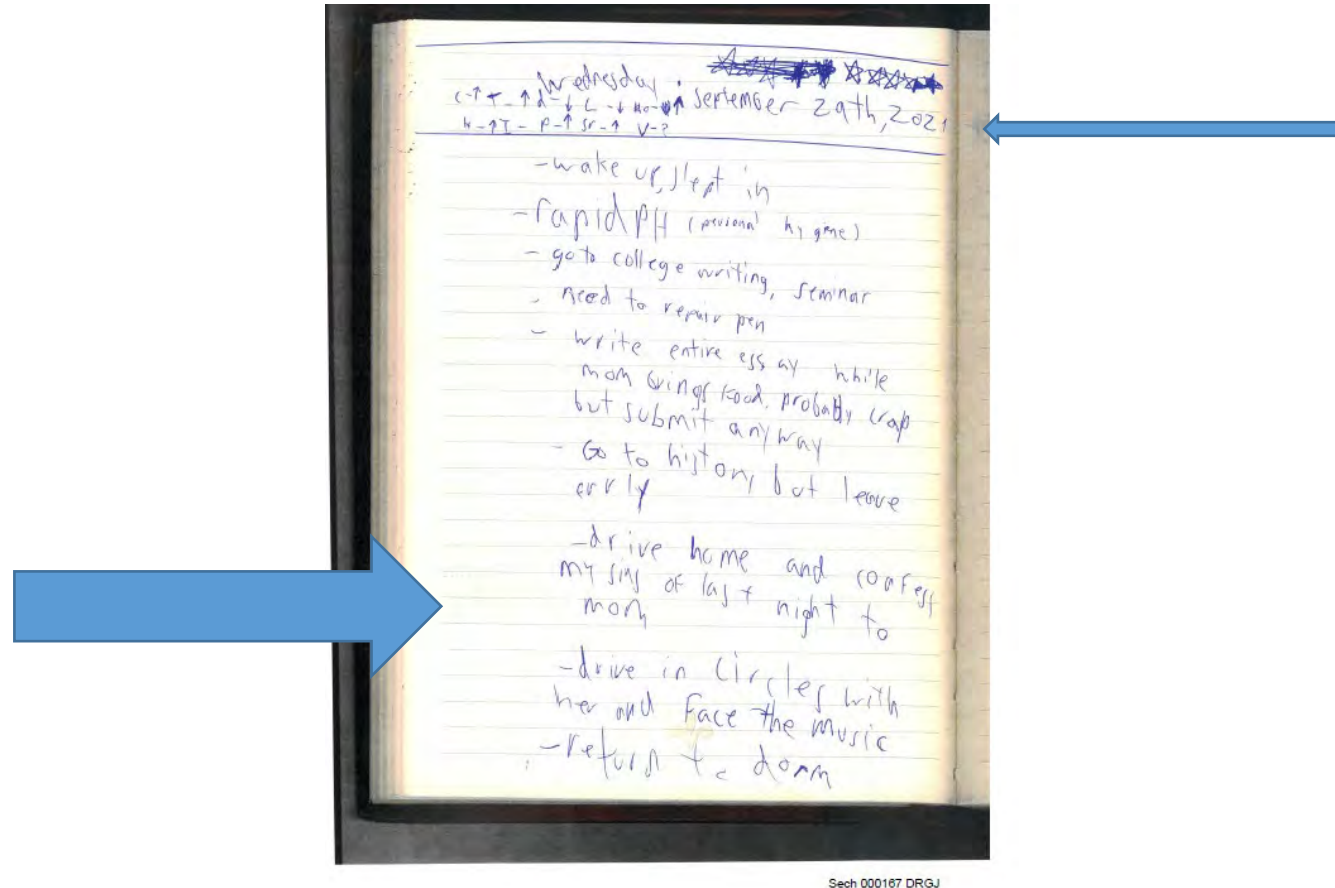 Wednesday. September 29th, 2021
C-↑ T-↑ d-↓ L-↓ Mo-↑
H-↑ I- P-↑ Sr-↑ V-?
-wake up, slept in
-rapid PH (personal hygine)
- go to college writing, seminar
- need to repair pen
- write entire essay while
mom brings food. probably crap
but submit anyway
- Go to history but leave
early
-drive home and confess
my sins of last night to
mom
-drive in circles with
her and face the music
-return to dorm
Sech 000167 DRGJ